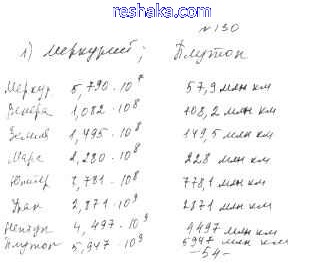 reshaka.com
№130
1) Меркурий; Плутон
Меркур 5,790 · 10⁷ 57,9 млн км
Венера 1,082 · 10⁸ 108,2 млн км
Земля 1,495 · 10⁸ 149,5 млн км
Марс 2,280 · 10⁸ 228 млн км
Юпитер 7,781 · 10⁸ 778,1 млн км
Уран 2,871 · 10⁹ 2871 млн км
Нептун 4,497 · 10⁹ 4497 млн км
Плутон 5,947 · 10⁹ 5947 млн км
-54-